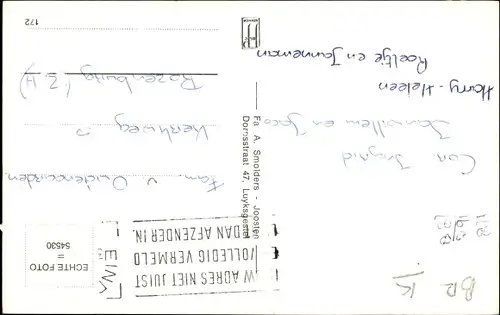 EINA
W ADRES NIET JUIST
VOLLEDIG VERMELD
DAN AFZENDER IN.
ECHTE FOTO
=
54530
Fam. v Oudenaarden
Kerkweg
Rozenburg (Z H)
172
Fa A. Smolders - Joosten
Dorpsstraat 47, Luyksgestel
Con Ingrid
Janwillem en Jaco
Harry - Heleen
Roeltje en Janneman
BR K